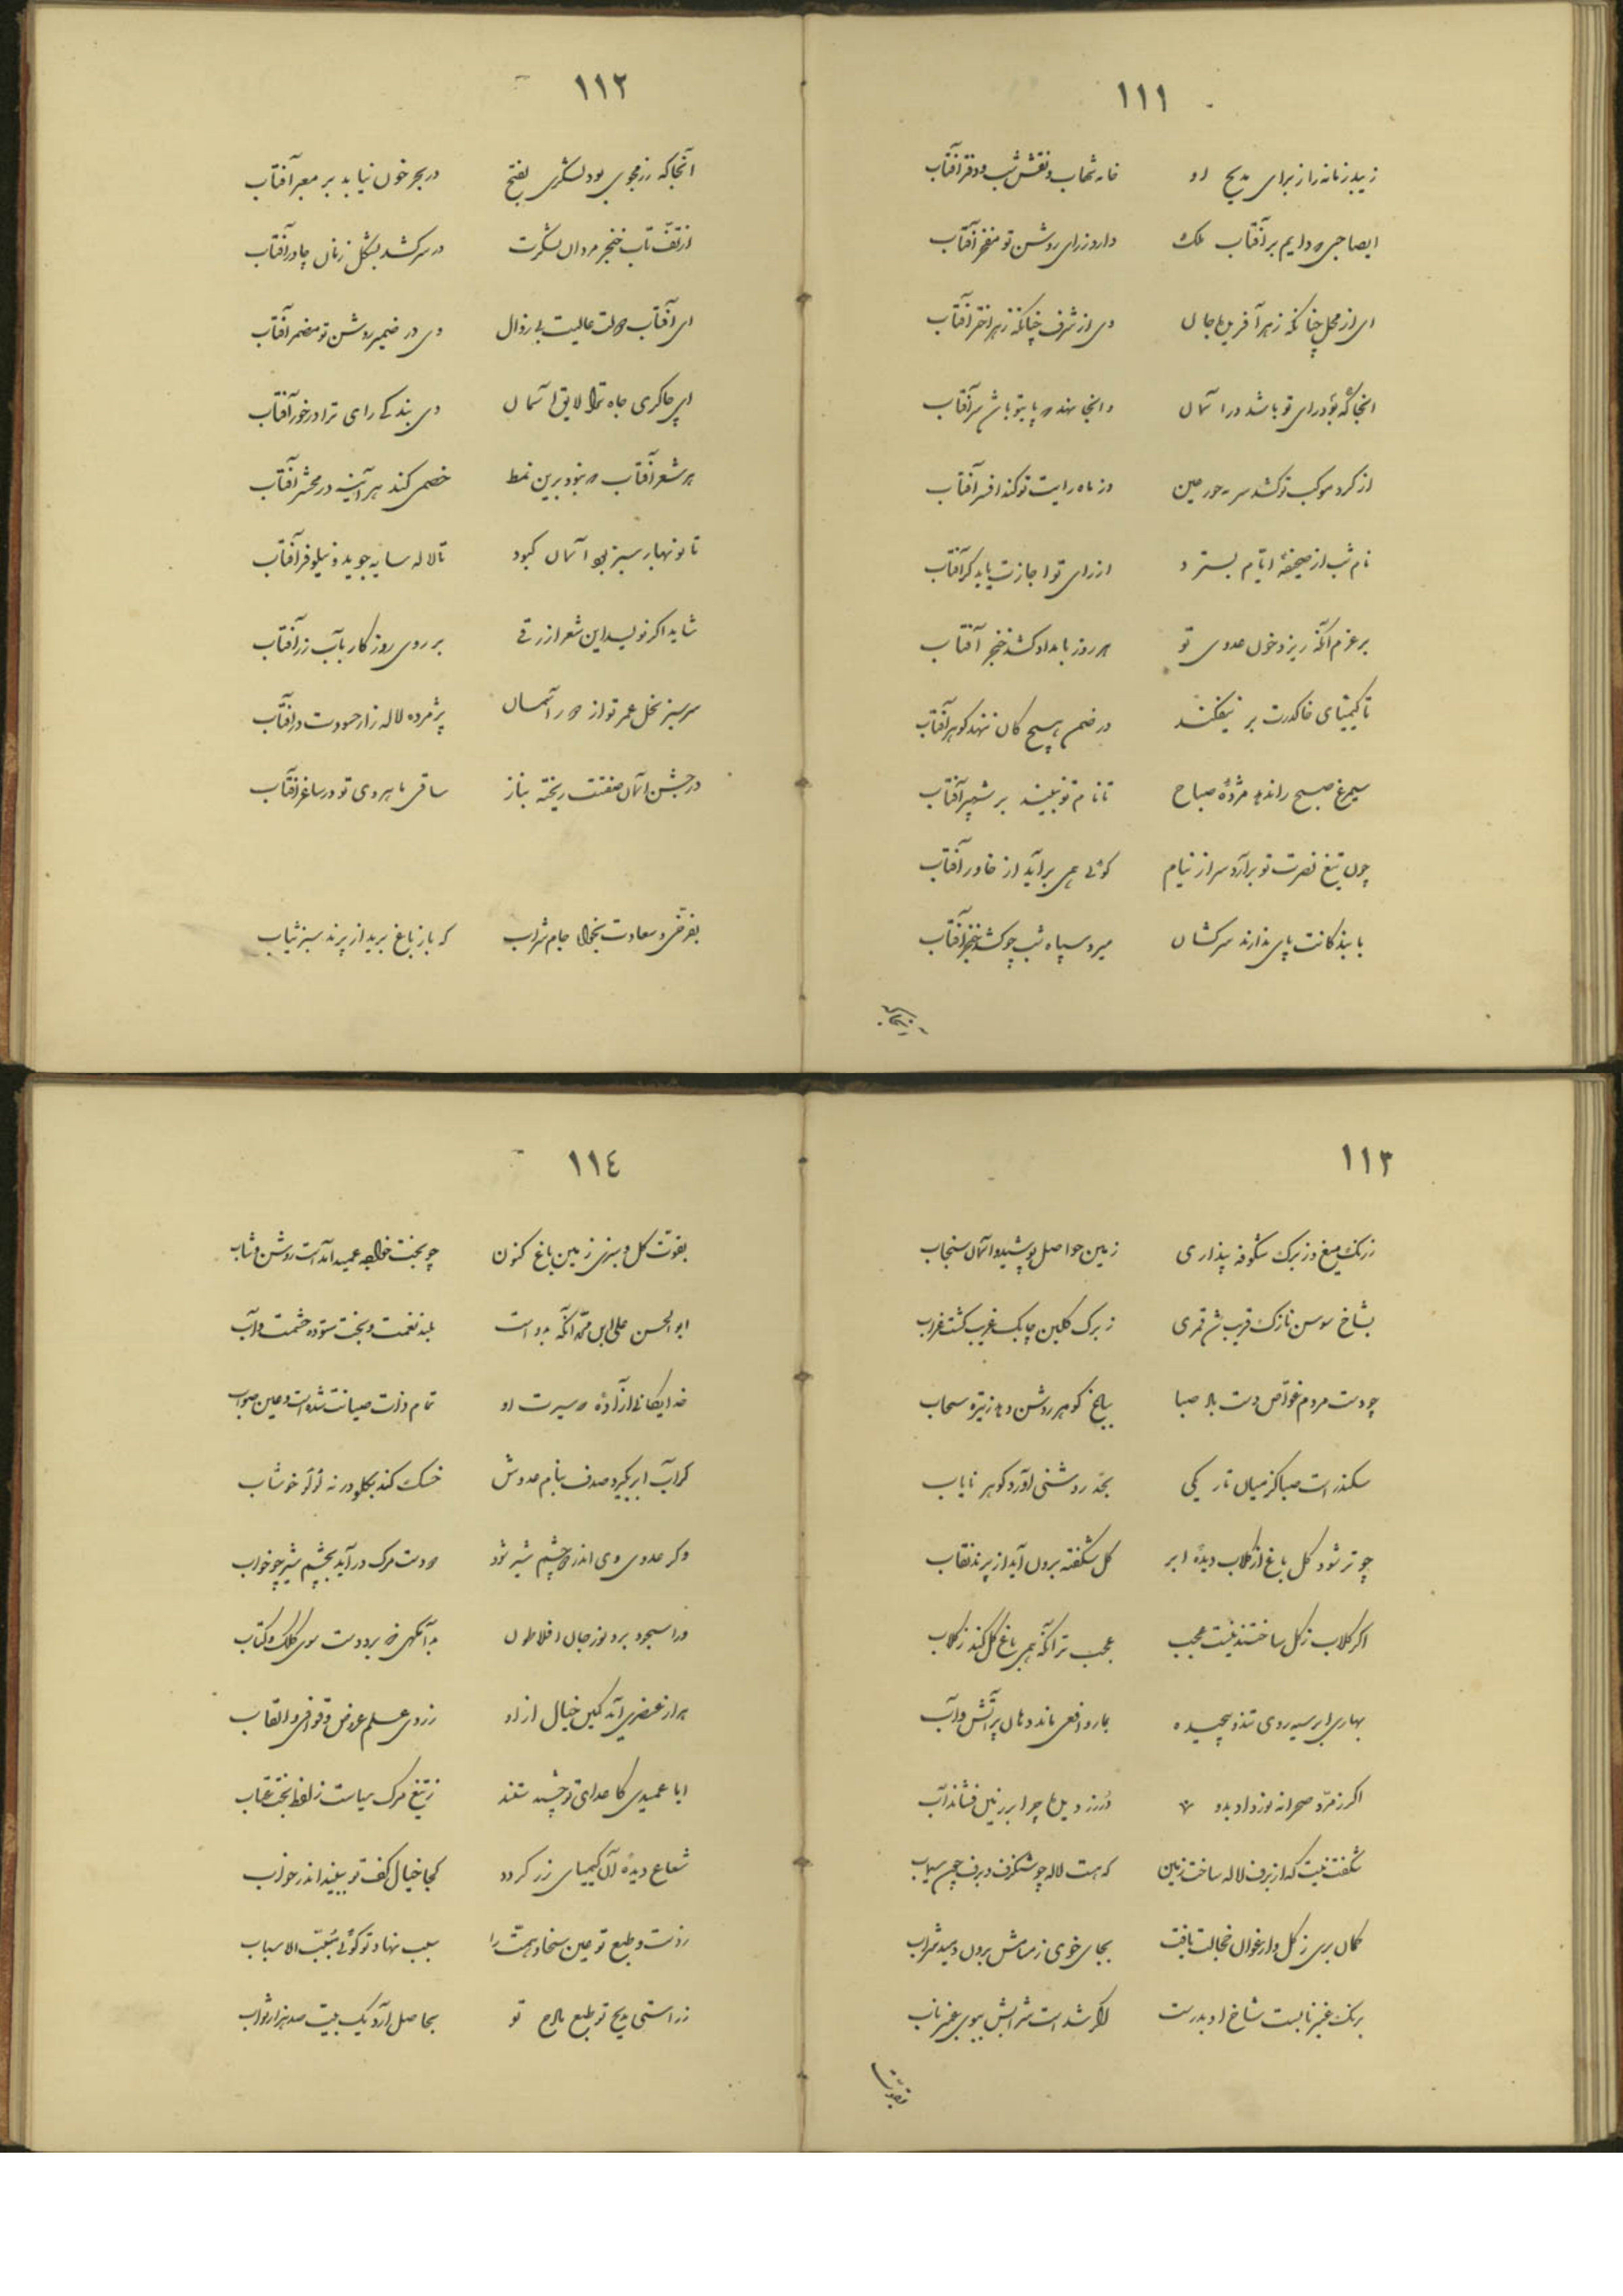 ١١١
زیبد زمانه را ز برای مدیح او خامه شهاب و نقش شب و دفتر آفتاب
ایصاحبی دایم بر آفتاب ملک دارد ز رای روشن تو مفخر آفتاب
ای از محل چنانکه ز هر آفریده جان وی از شرف چنانکه ز هر اختر آفتاب
انجا که بود رای تو باشد در آسمان و انجا نهد پای تو باشد سر آفتاب
از کرد موکب تو کشد سرمه حور عین وز ماه رایت تو کند افسر آفتاب
نام شب از صحیفهٔ ایام بسترد از رای تو اجازت یابد کر آفتاب
بر عزم آنکه ریزد خون عدوی تو هر روز بامداد کشد خنجر آفتاب
تا کیمیای خاک درت بر نیفکند در ضمن هیچ کان ننهد کوهر آفتاب
سیمرغ صبح را ندهد مژدهٔ صباح تا نام تو نبیند بر شهپر آفتاب
چون تیغ نصرت تو بر آرد سر از نیام کوئی همی برآید از خاور آفتاب
با بندکانت پای ندارند سرکشان میرد سپاه شب چو کشد خنجر آفتاب
انجا که
١١٢
آنجا که رزمجوی بود لشکری بفتح در بحر خون نیابد بر معبر آفتاب
از تفّ تاب خنجر مردان لشکرت در سر کشد بشکل زنان چادر آفتاب
ای آفتاب دولت عالیت بی زوال وی در ضمیر روشن تو مضمر آفتاب
ای چاکری جاه ترا لایق آسمان وی بندکی رای ترا درخور آفتاب
هر شعر آفتاب نبود برین نمط خصمی کند هر آینه در محشر آفتاب
تا نوبهار سبز بود آسمان کبود تا لاله سایه جوید و نیلوفر آفتاب
شاید اکر نویسد این شعر ازرقی بر روی روزکار بآب زر آفتاب
سر سبز نخل عمر تو از دور آسمان پژمرده لاله زار حسودت در آفتاب
در جشن آسمان صفتت ریخته بناز ساقی ماهروی تو در ساغر آفتاب
بفرّخی و سعادت بخواه جام شراب که باز باغ برید از پرند سبز ثیاب
١١٣
ز رنک میغ و ز برک شکوفه پنداری زمین حواصل پوشید و آسمان سنجاب
بشاخ سوسن نازک قریب شد قمری ز برک کلبن چابک غریب کشت غراب
چو دست مردم غوّاص دست باد صبا بباغ کوهر روشن دهد ز تیره سحاب
سکندر است صبا کز میان تاریکی بحدّ روشنی آورد کوهر نایاب
چو تر شود کل باغ از کلاب دیدهٔ ابر کل شکفته برون آید از پرند نقاب
اکر کلاب ز کل ساختند نیست عجب عجب تر آنکه همی باغ کل کند ز کلاب
بهاری ابر سیه روی تند و پیچیده بمار و افعی ماند دهان پر آتش و آب
اکر زمرّد صحرا نه نور داد بدو ز دیده ها چرا بر زمین فشاند آب
شکفت نیست که از برف لاله ساخت زمین که هست لاله چو شنکرف و برف چون سیماب
کمان بری ز کل و ارغوان خجالت یافت بجای خوی ز مسامش برون دمید شراب
برنک عنبر نابست شاخ او بدرست اکر شد است شرابش ببوی عنبر ناب
بقوّت
١١٤
بقوت کل و سبزی زمین باغ کنون چو بخت خواجه عمید آمدست روشن و شاب
ابوالحسن علی ابن محمد آنکه بدوست بلند نعمت و بخت ستوده حشمت و آب
خدایکانی از آزاده سیرت او تمام ذات صیانت شده است و عین صواب
کر آب ابر بکیرد صدف بنام عدوش خسک کند بکلو در نه لؤلؤ خوشاب
وکر عدوی وی اندر دو چشم شیر شود دو دست مرک در آید بچشم شیر چو خواب
ورا سجود برد نور جان افلاطون بدانکهی که برد دست سوی کلک و کتاب
هر از عنصری آمد کمین خیال از او ز روی علم عروض و قوافی و القاب
ایا عمیدی کاعدای تو چشیدستند ز تیغ مرک سیاست ز لفظ بخت عتاب
شعاع دیدهٔ آن کیمیای زر کردد کجا خیال کف تو ببیند اندر خواب
ز دست و طبع تو عین سخا و همت را سبب نهاد تو کوئی مسبّب الاسباب
ز راستی مدیح تو طبع مادح تو بحاصل آرد یک بیت صد هزار ثواب